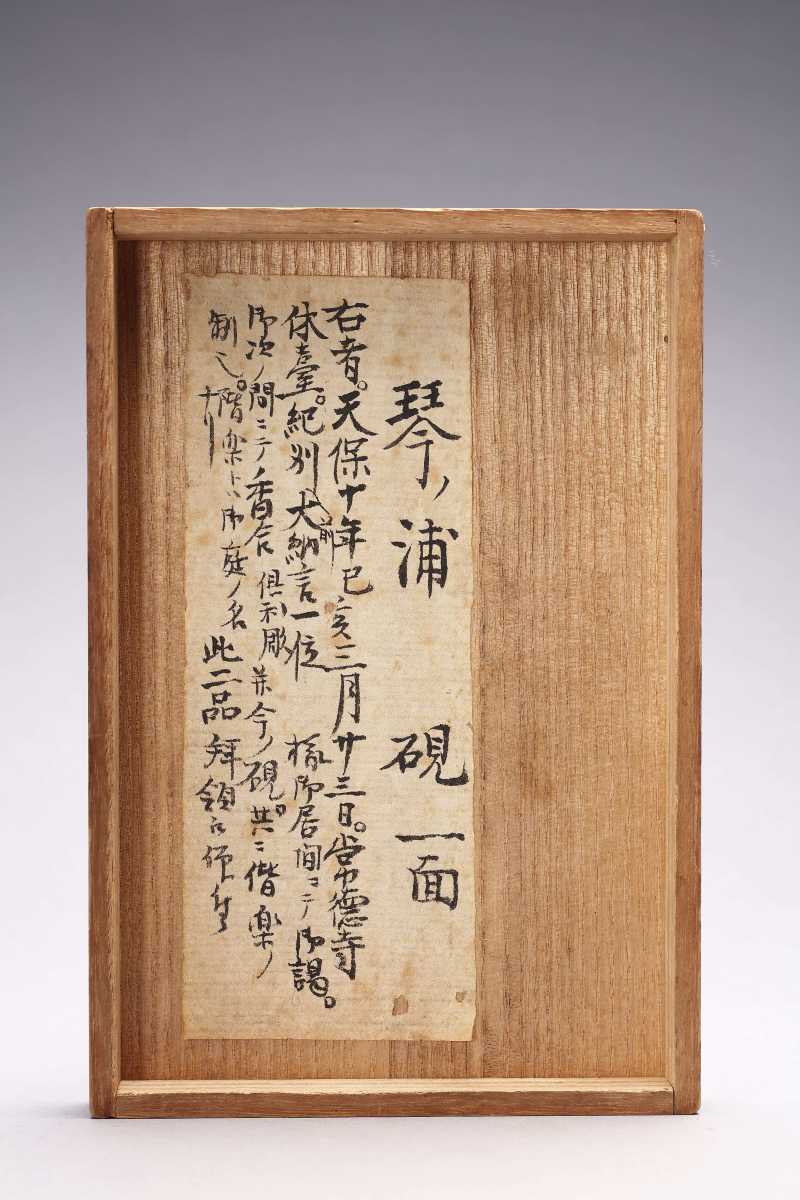 琴ノ浦 硯一面
右者。天保十年己亥三月廿三日。常徳寺
休臺。紀州前大納言一位 様御居間ニテ御謁。
御次ノ間ニテノ香合 倶利彫 并今ノ硯。共ニ偕楽ノ
制也。偕楽ハ御庭ノ名ナリ 此二品拝領